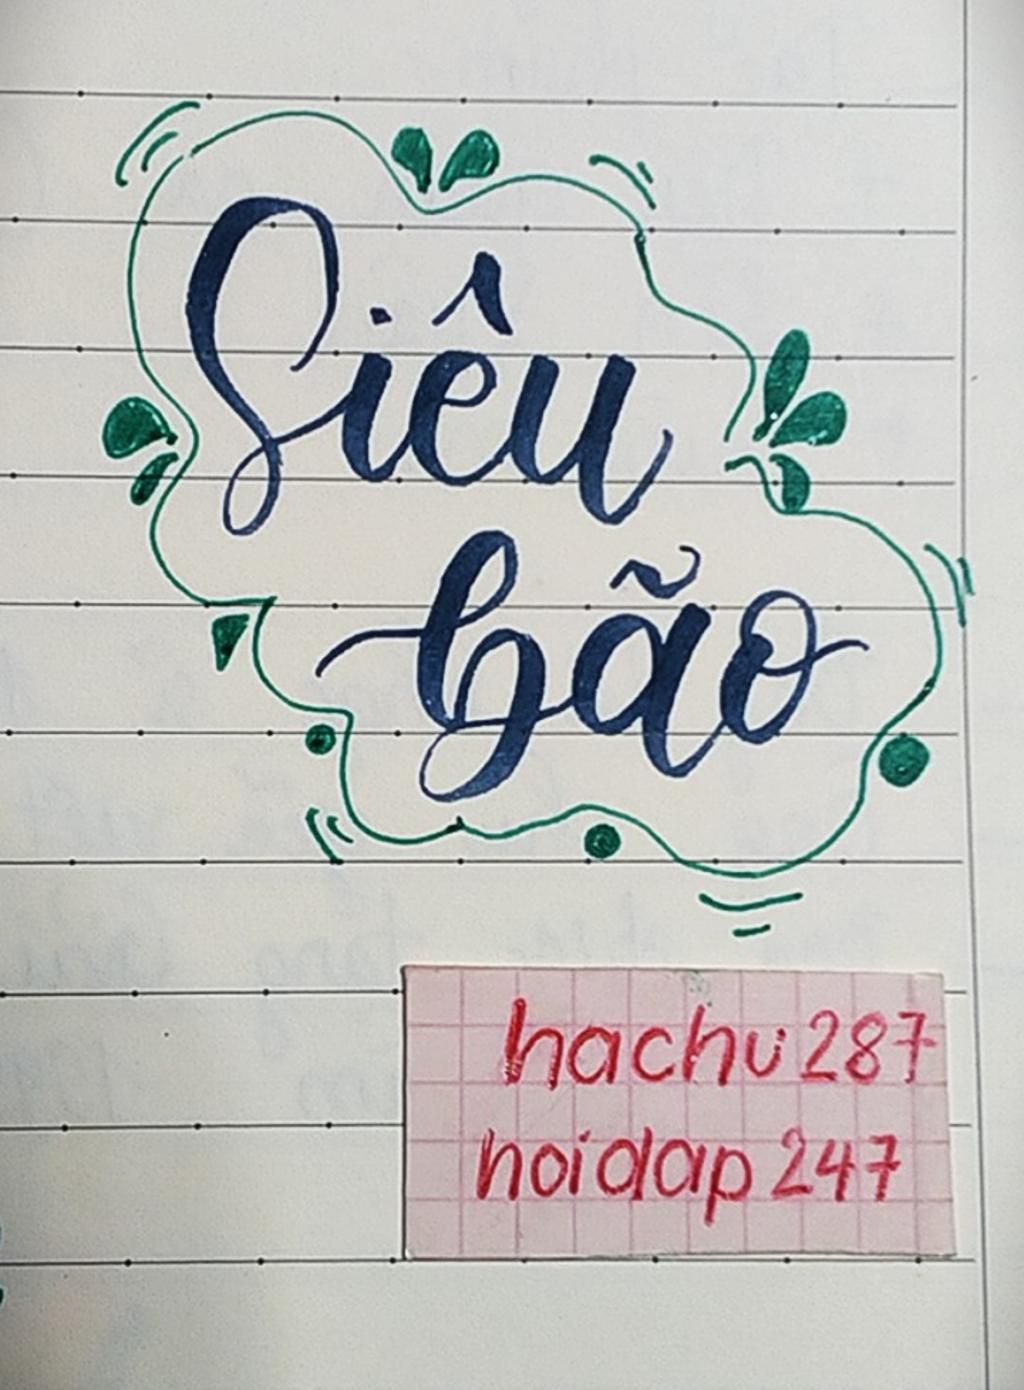 Siêu
bão
hachu287
hoidap247